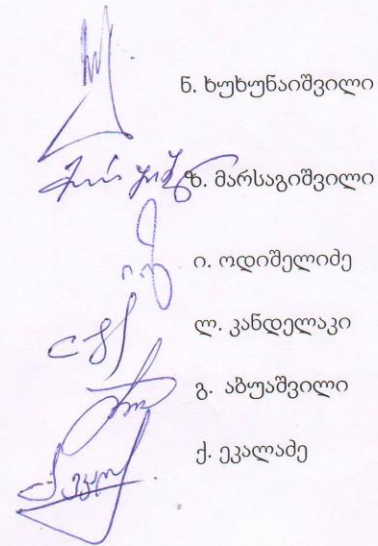 ნ. ხუხუნაიშვილი
ზ. მარსაგიშვილი
ი. ოდიშელიძე
ლ. კანდელაკი
გ. აბუაშვილი
ქ. ეკალაძე